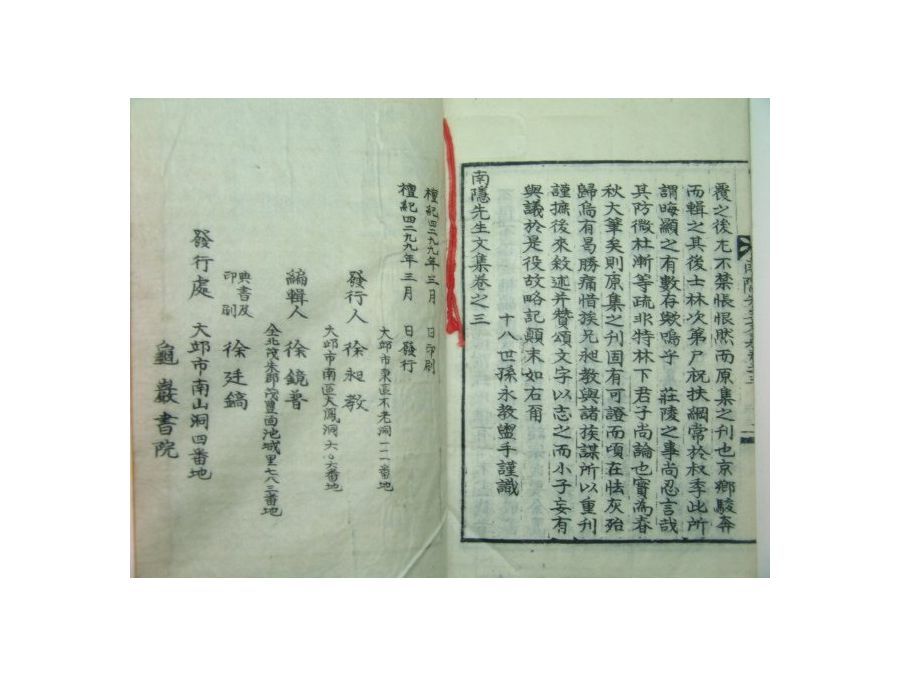 覆之後尤不禁悵恨然而原集之刊也京鄉駿奔
而輯之其後士林次第尸祝扶綱常於叔季此所
謂晦顯之有數存歟嗚乎 莊陵之事尚忍言哉
其防微杜漸等疏非特林下君子尚論也實為春
秋大筆矣則原集之刊固有可證而頃在怯灰殆
歸烏有曷勝痛惜族兄昶教與諸族謀所以重刊
謹摭後來敘述并贊頌文字以志之而小子妄有
與議於是役故略記顛末如右爾
十八世孫永教盥手謹識
南隱先生文集卷之三
檀紀四二九九年三月 日印刷
檀紀四二九九年三月 日發行
大邱市東區不老洞一一二番地
發行人 徐昶教
大邱市南區大鳳洞六〇六番地
編輯人 徐鏡普
全北茂朱郡茂豊面池城里七八三番地
典書及印刷 徐廷鎬
發行處 大邱市南山洞四番地
龜巖書院